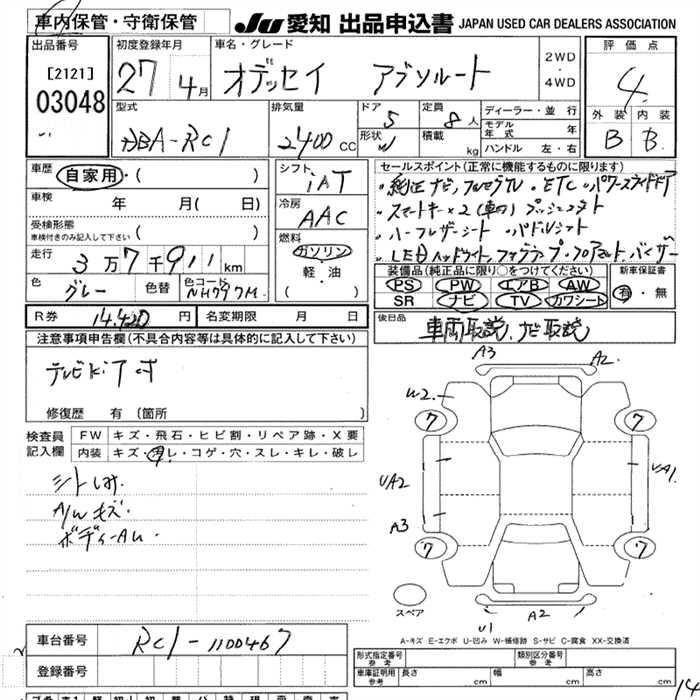 車内保管・守衛保管
JU 愛知 出品申込書 JAPAN USED CAR DEALERS ASSOCIATION
出品番号
[2121]
03048
初度登録年月
27 4月
車名・グレード
オデッセイ アブソルート
2WD
・
4WD
評価点
4
外装 内装
B B
型式
DBA-RC1
排気量
2400 CC
ドア 5
形状 W
定員 8人
積載 kg
ディーラー・並行
モデル年式 年
ハンドル 左・右
車歴 自家用・( )
車検 年 月( 日)
受検形態
車検付きのみ記入して下さい ( )
走行
3万7千911km
色
グレー
色替
色コード
NH797M
シフト
IAT
冷房
AAC
燃料
ガソリン
・
軽・油
( )
セールスポイント(正常に機能するものに限ります)
・純正ナビ,フルセグTV ・ETC ・パワースライドドア
・スマートキー×2(車の) プッシュスタート
・ハーフレザーシート ・パドルシフト
・LEDヘッドライト,フォグランプ・フロアマット・バイザー
装備品(純正品に限り○をつけてください)
PS PW エアB AW
SR ナビ TV カワシート
新車保証書
有・無
R券 14,420 円
名変期限 月 日
後日品
車両取説、ナビ取説
注意事項申告欄(不具合内容等は具体的に記入して下さい)
テレビKitア付
修復歴 有 (箇所 )
検査員記入欄
FW キズ・飛石・ヒビ割・リペア跡・X要
内装 キズ・汚レ・コゲ・穴・スレ・キレ・破レ
シートしみ
A/Wキズ
ボディーAU
A3
A2
W2
7
7
UA2
UA1
A3
7
7
スペア
A2
U1
A-キズ E-エクボ U-凹み W-補修跡 S-サビ C-腐食 XX-交換済
車台番号 RC1-1100467
登録番号
形式指定番号 参考
類別区分番号 参考
車庫証明用 参考
長さ cm
幅 cm
高さ cm